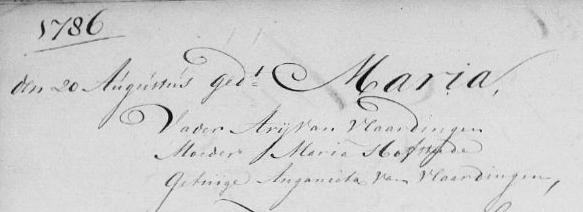 1786
den 20 Augustus ged:t Maria,
Vader Arij Van Vlaardingen
Moeder Maria Hofstede
Getuige Anganieta Van Vlaardingen,